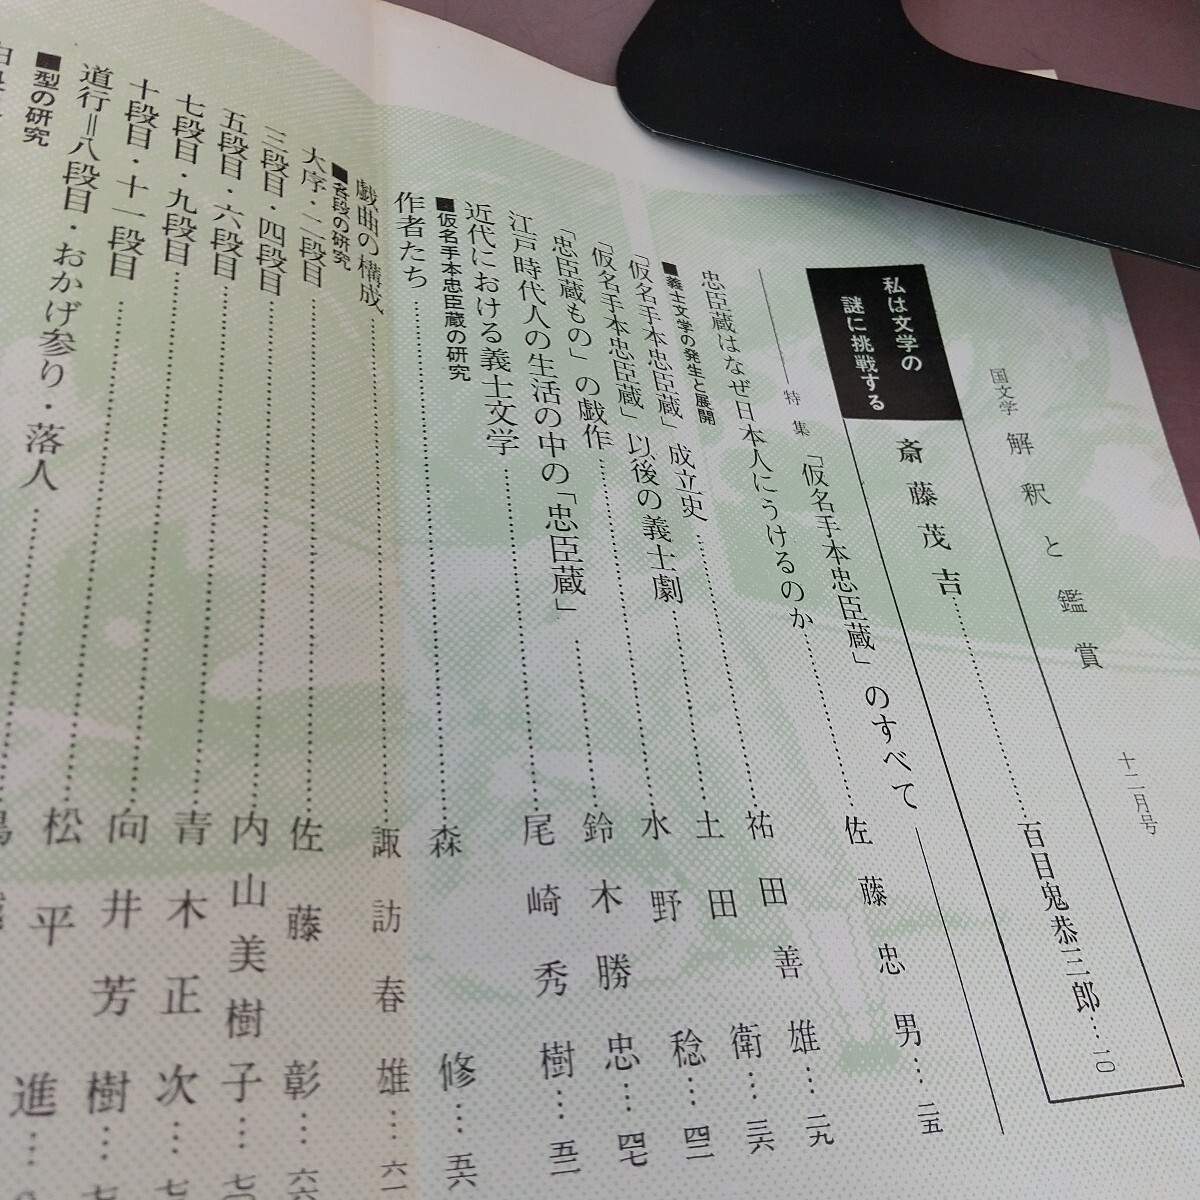 国文学 解釈と鑑賞 十二月号
私は文学の
謎に挑戦する
斎藤茂吉……百目鬼恭三郎…一〇
特集 「仮名手本忠臣蔵」のすべて
忠臣蔵はなぜ日本人にうけるのか……佐藤忠男…二五
■義士文学の発生と展開
「仮名手本忠臣蔵」成立史……祐田善雄…二九
「仮名手本忠臣蔵」以後の義士劇……土田衛…三六
「忠臣蔵もの」の戯作……水野稔…四二
江戸時代人の生活の中の「忠臣蔵」……鈴木勝忠…四七
近代における義士文学……尾崎秀樹…五二
■仮名手本忠臣蔵の研究
作者たち……森修…五六
戯曲の構成……諏訪春雄…六一
■各段の研究
大序・二段目……佐藤彰…六六
三段目・四段目……内山美樹子…七〇
五段目・六段目……青木正次…七
七段目・九段目……向井芳樹…七
十段目・十一段目……松平進…
道行＝八段目・おかげ参り・落人……
■型の研究